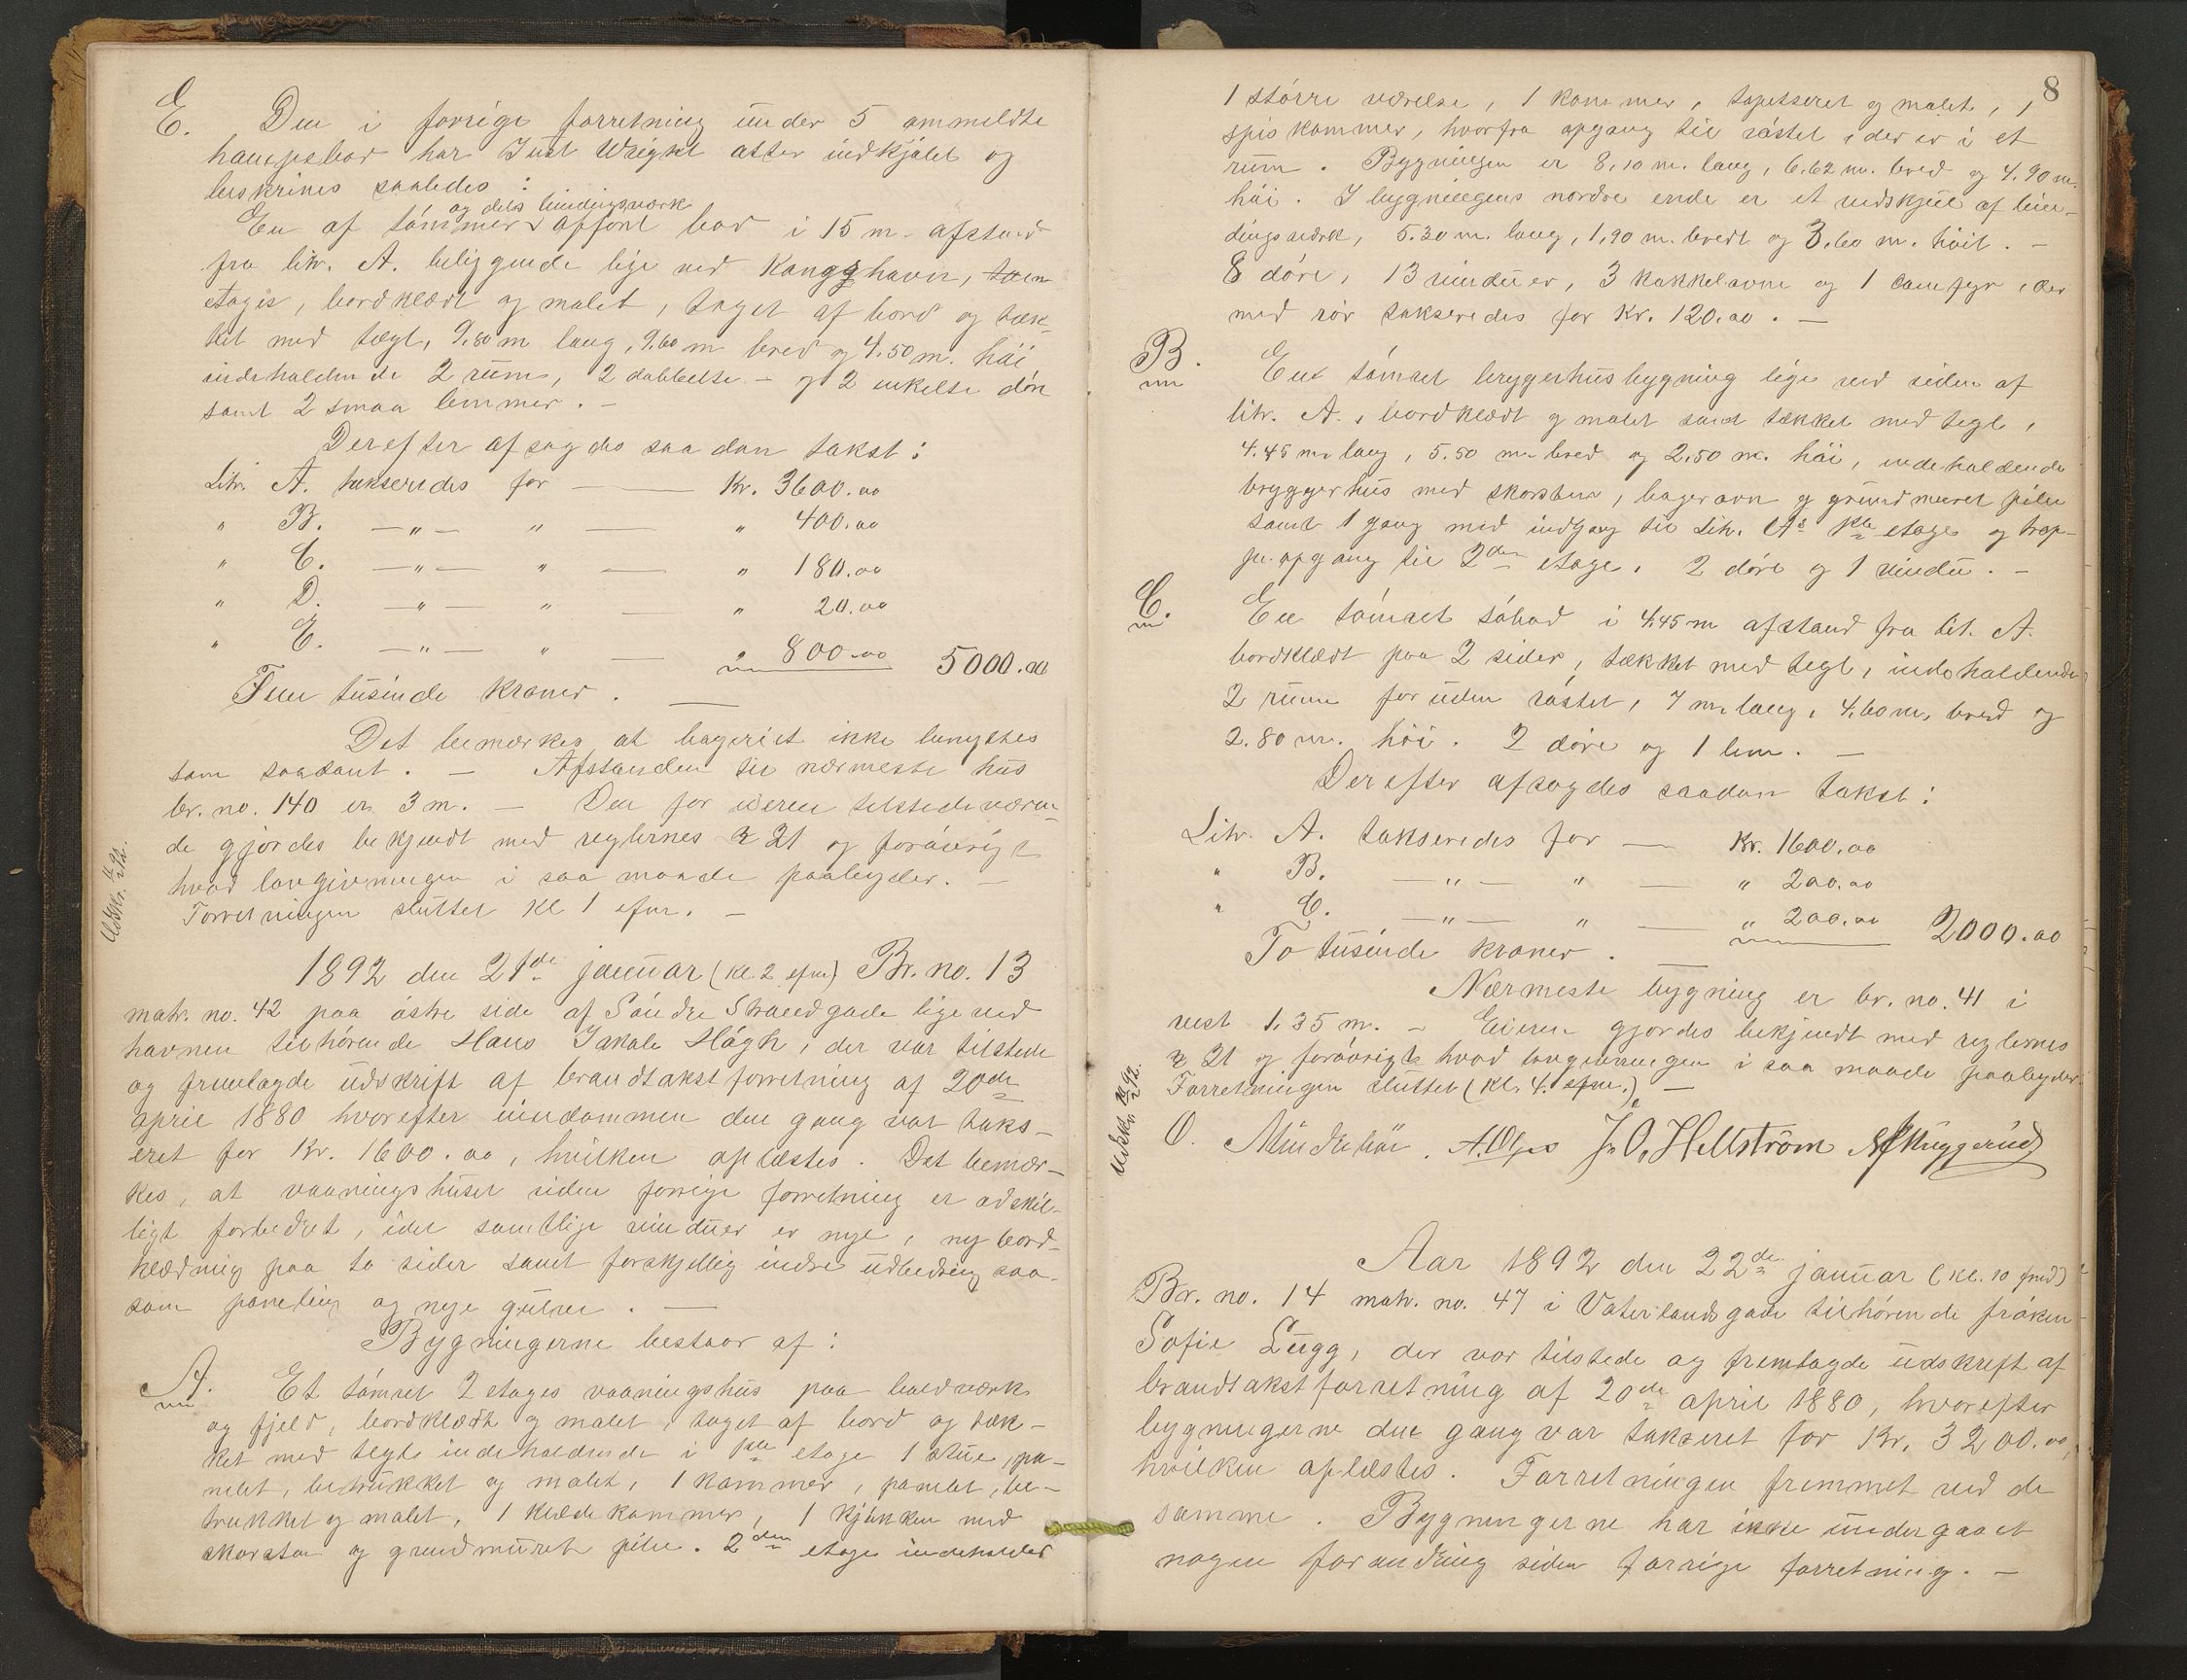 E. Den i forrige forretning under 5 ommeldte
havnebod har Just Wright atter indkjøbt og
beskrives saaledes:
og dels bindingsværk
En af tømmer opført bod i 15 m. afstand
fra litr. A. beliggende lige ved havn, toen
etages, bordklædt og malet, taget af bord og tæk-
ket med tegl, 9.80 m lang, 9.60 m bred og 4.50 m. høi
indeholdende 2 rum, 2 dobbelte - og 2 enkelte døre
samt 2 smaa lemmer. -
Derefter afsagdes saadan takst:
Litr. A. takseredes for — Kr. 3600.00
" B. —"— " — " 400.00
" C. —"— " — " 180.00
" D. —"— " — " 20.00
" E. —"— " — " 800.00 5000.00
Fem tusinde kroner. —
Det bemærkes at bageriet ikke benyttes
som saadant. - Afstanden til nærmeste hus
br. no. 140 er 3 m. - Den for eieren tilstedeværen-
de gjordes bekjendt med reglernes § 21 og forøvrigt
hvad lovgivningen i saa maade paabyder. -
Forretningen sluttet kl 1 efm. -
Udskr. 92.
1892 den 21de januar (kl. 2 efm) Br. no. 13
matr. no. 42 paa østre side af Søndre Strandgade lige ved
havnen tilhørende Hans Jakob Høgh, der var tilstede
og fremlagde udskrift af brandtakstforretning af 20de
april 1880 hvorefter eiendommen den gang var taks-
eret for Kr. 1600.00, hvilken oplæstes. Det bemær-
kes, at vaaningshuset siden forrige forretning er adskil-
ligt forbedret, idet samtlige vinduer er nye, ny bord-
klædning paa to sider samt forskjellig indre udbedring saa-
som paneling og nye gulve. —
Bygningerne bestaar af:
A. Et tømret 2 etages vaaningshus paa boldværk
og fjeld, bordklædt og malet, taget af bord og tæk-
ket med tegl indeholdende i 1ste etage 1 stue, pa-
nelet, betrukket og malet, 1 kammer, panelet, be-
trukket og malet, 1 klædekammer, 1 kjøkken med
skorsten og grundmuret pibe. 2den etage indeholder
8
1 større værelse, 1 kammer, tapetseret og malet, 1
spiskammer, hvorfra opgang til røstet, der er i et
rum. Bygningen er 8.10 m. lang, 6.62 m. bred og 4.90 m.
høi. I bygningens nordre ende er et vedskjul af bin-
dingsværk, 5.30 m. lang, 1.90 m. bredt og 3.60 m. høit. -
8 døre, 13 vinduer, 3 kakkelovne og 1 comfyr, der
med rør takseredes for Kr. 120.00. —
B. En tømret bryggerhusbygning lige ved siden af
litr. A., bordklædt og malet samt tækket med tegl,
4.45 m. lang, 5.50 m. bred og 2.50 m. høi, indeholdende
bryggerhus med skorsten, bagerovn og grundmuret pibe
samt 1 gang med indgang til Litr. As 1ste etage og trap-
peopgang til 2den etage. 2 døre og 1 vindu. -
C. En tømret søbod i 4.45 m afstand fra lit. A.
bordklædt paa 2 sider, tækket med tegl, indeholdende
2 rum foruden røstet, 7 m. lang, 4.60 m. bred og
2.80 m. høi. 2 døre og 1 lem. —
Derefter afsagdes saadan takst:
Litr. A. takseredes for — Kr. 1600.00
" B. —"— " — " 200.00
" C. —"— " — " 200.00 2000.00
To tusinde kroner. —
Nærmeste bygning er br. no. 41 i
vest 1.35 m. - Eieren gjordes bekjendt med reglernes
§ 21 og forøvrigt hvad lovgivningen i saa maade paabyder.
Forretningen sluttet (kl. 4. efm.) —
Udskr. 92.
O. A. Olsen J. O. Hellström
Aar 1892 den 22de januar (kl. 10 fmd)
Br. no. 14 matr. no. 47 i Vaterlandsgade tilhørende frøken
Sofie Lugg, der var tilstede og fremlagde udskrift af
brandtakstforretning af 20de april 1880, hvorefter
bygningerne den gang var takseret for Kr. 3200.00,
hvilken oplæstes. Forretningen fremmet ved de
samme. Bygningerne har ikke undergaaet
nogen forandring siden forrige forretning. -